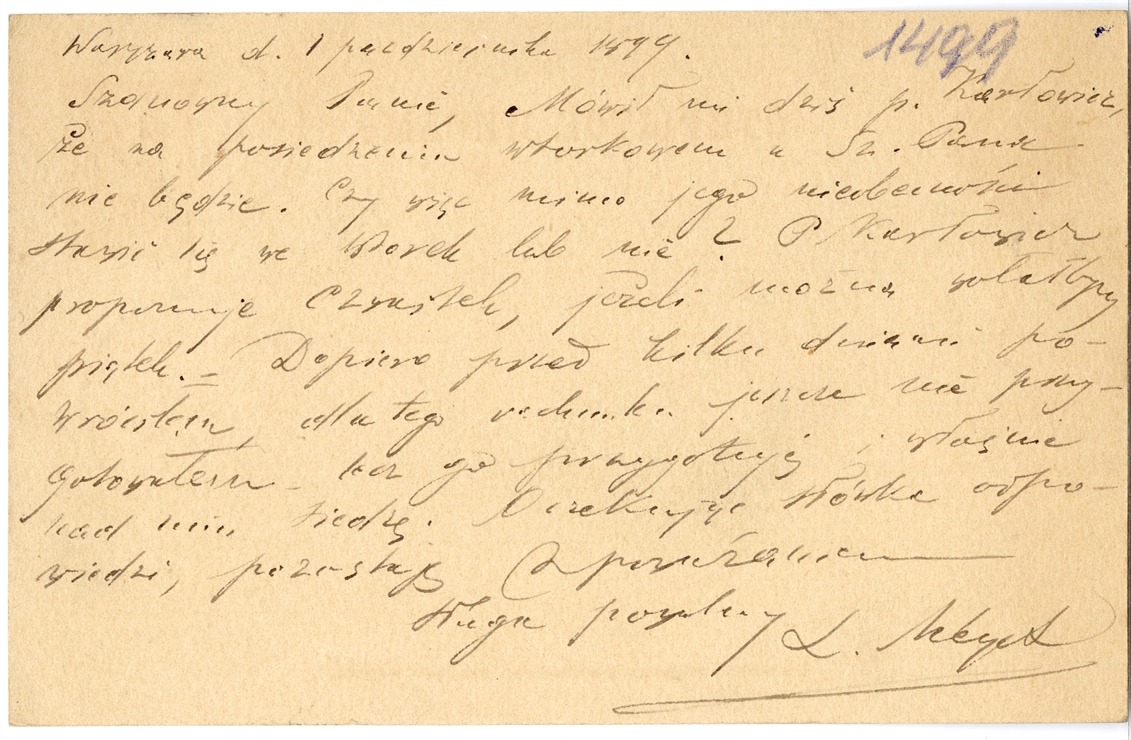 Warszawa d. 1 października 1899.
1499
Szanowny Panie, Mówił mi dziś p. Karłowicz,
że na posiedzeniu wtorkowem u Sz. Pana
nie będzie. Czy więc mimo jego nieobecności
stawić się we Wtorek lub nie? P Karłowicz
proponuje Czwartek, jeżeli można wolałbym
piątek. – Dopiero przed kilku dniami po-
wróciłem, dla tego rachunku jeszcze nie przy-
gotowałem – lecz go przygotuję i właśnie
nad nim siedzę. Oczekując słówka odpo-
wiedzi, pozostaję Z poważaniem
sługa powolny L. Meyet